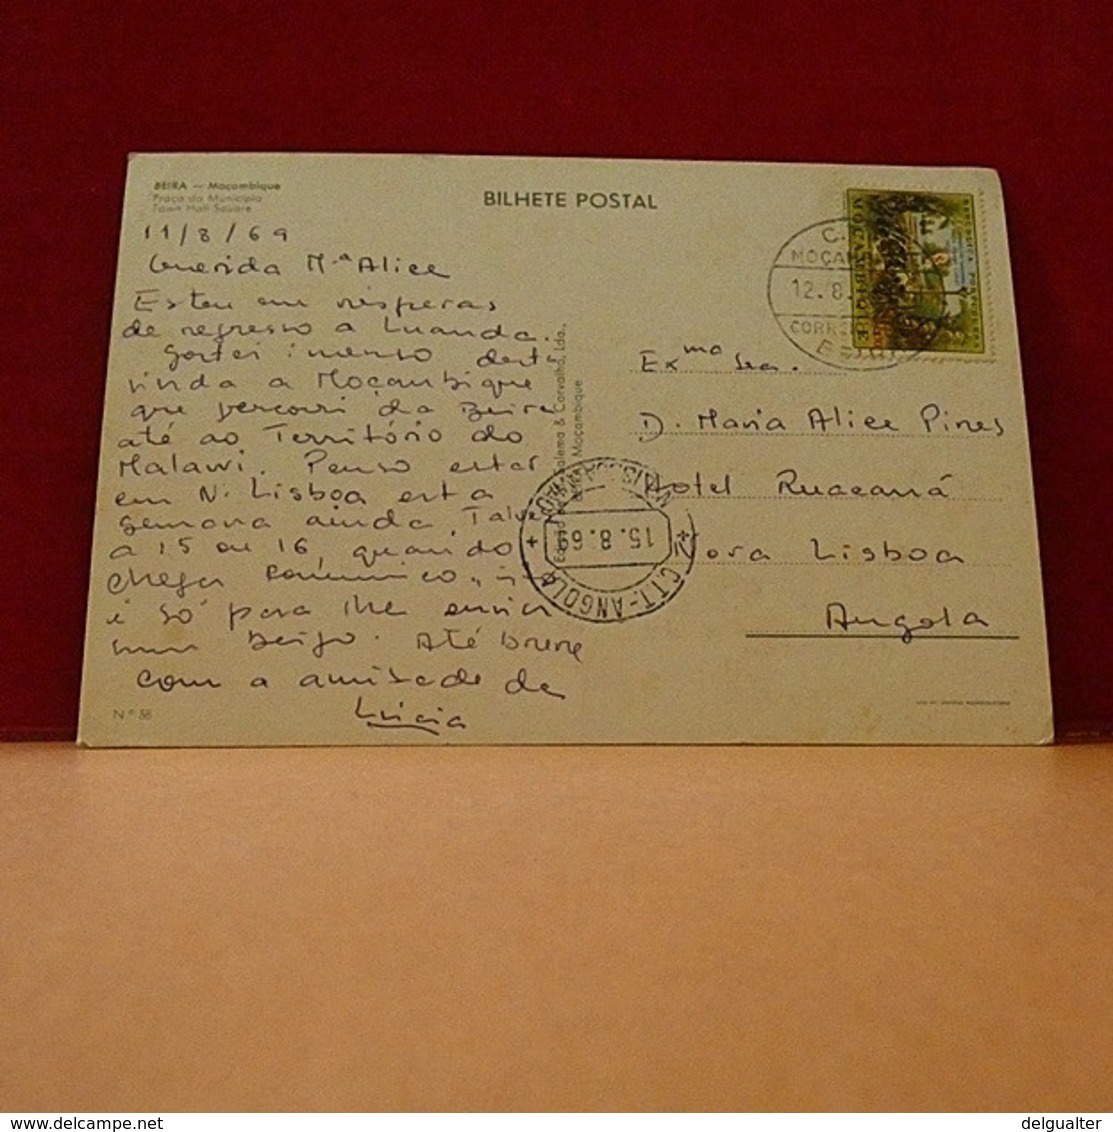 BEIRA — Moçambique
Praça do Município
Town Hall Square
BILHETE POSTAL
11/8/69
Querida M.ª Alice
Estou em vésperas
de regresso a Luanda.
Gostei imenso desta
vinda a Moçambique
que percorri da Beira
até ao Território do
Malawi. Penso estar
em N. Lisboa esta
semana ainda. Talvez
a 15 ou 16, quando
chegar comunico.
é só para lhe enviar
um beijo. Até breve
com a amizade da
Lúcia
Nº 56
Salema & Carvalho, Lda.,
Moçambique
MOÇAMBIQUE
REPÚBLICA PORTUGUESA
12.8.
Exma Sra.
D. Maria Alice Pires
Hotel Ruacaná
Nova Lisboa
Angola
15.8.69
C.T.T.-ANGOLA
delgualter